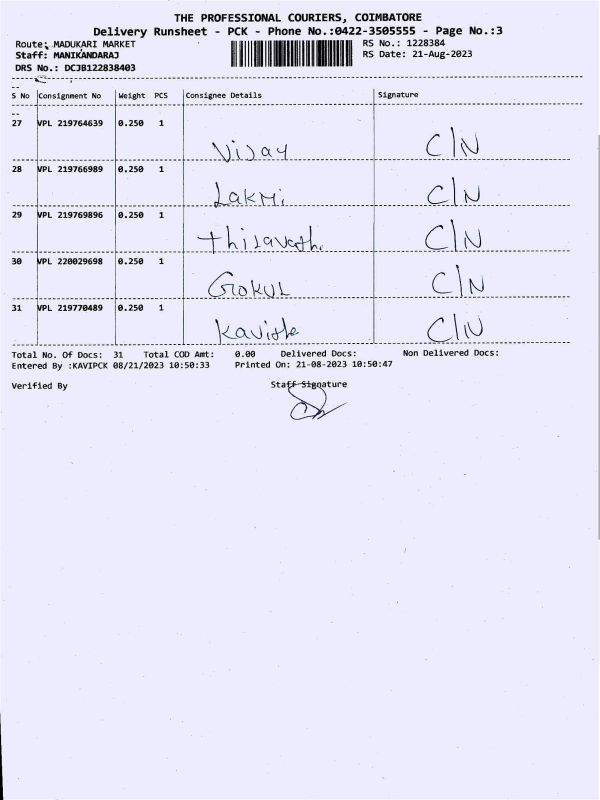 THE PROFESSIONAL COURIERS, COIMBATORE
Delivery Runsheet - PCK - Phone No.:0422-3505555 - Page No.:3
Route: MADUKARI MARKET RS No.: 1228384
Staff: MANIKANDARAJ RS Date: 21-Aug-2023
DRS No.: DCJB122838403
S No Consignment No Weight PCS Consignee Details Signature
27 VPL 219764639 0.250 1 Vijay C/N
28 VPL 219766989 0.250 1 Lakmi C/N
29 VPL 219769896 0.250 1 C/N
30 VPL 220029698 0.250 1 Gokul C/N
31 VPL 219770489 0.250 1 C/N
Total No. Of Docs: 31 Total COD Amt: 0.00 Delivered Docs: Non Delivered Docs:
Entered By :KAVIPCK 08/21/2023 10:50:33 Printed On: 21-08-2023 10:50:47
Verified By Staff Signature